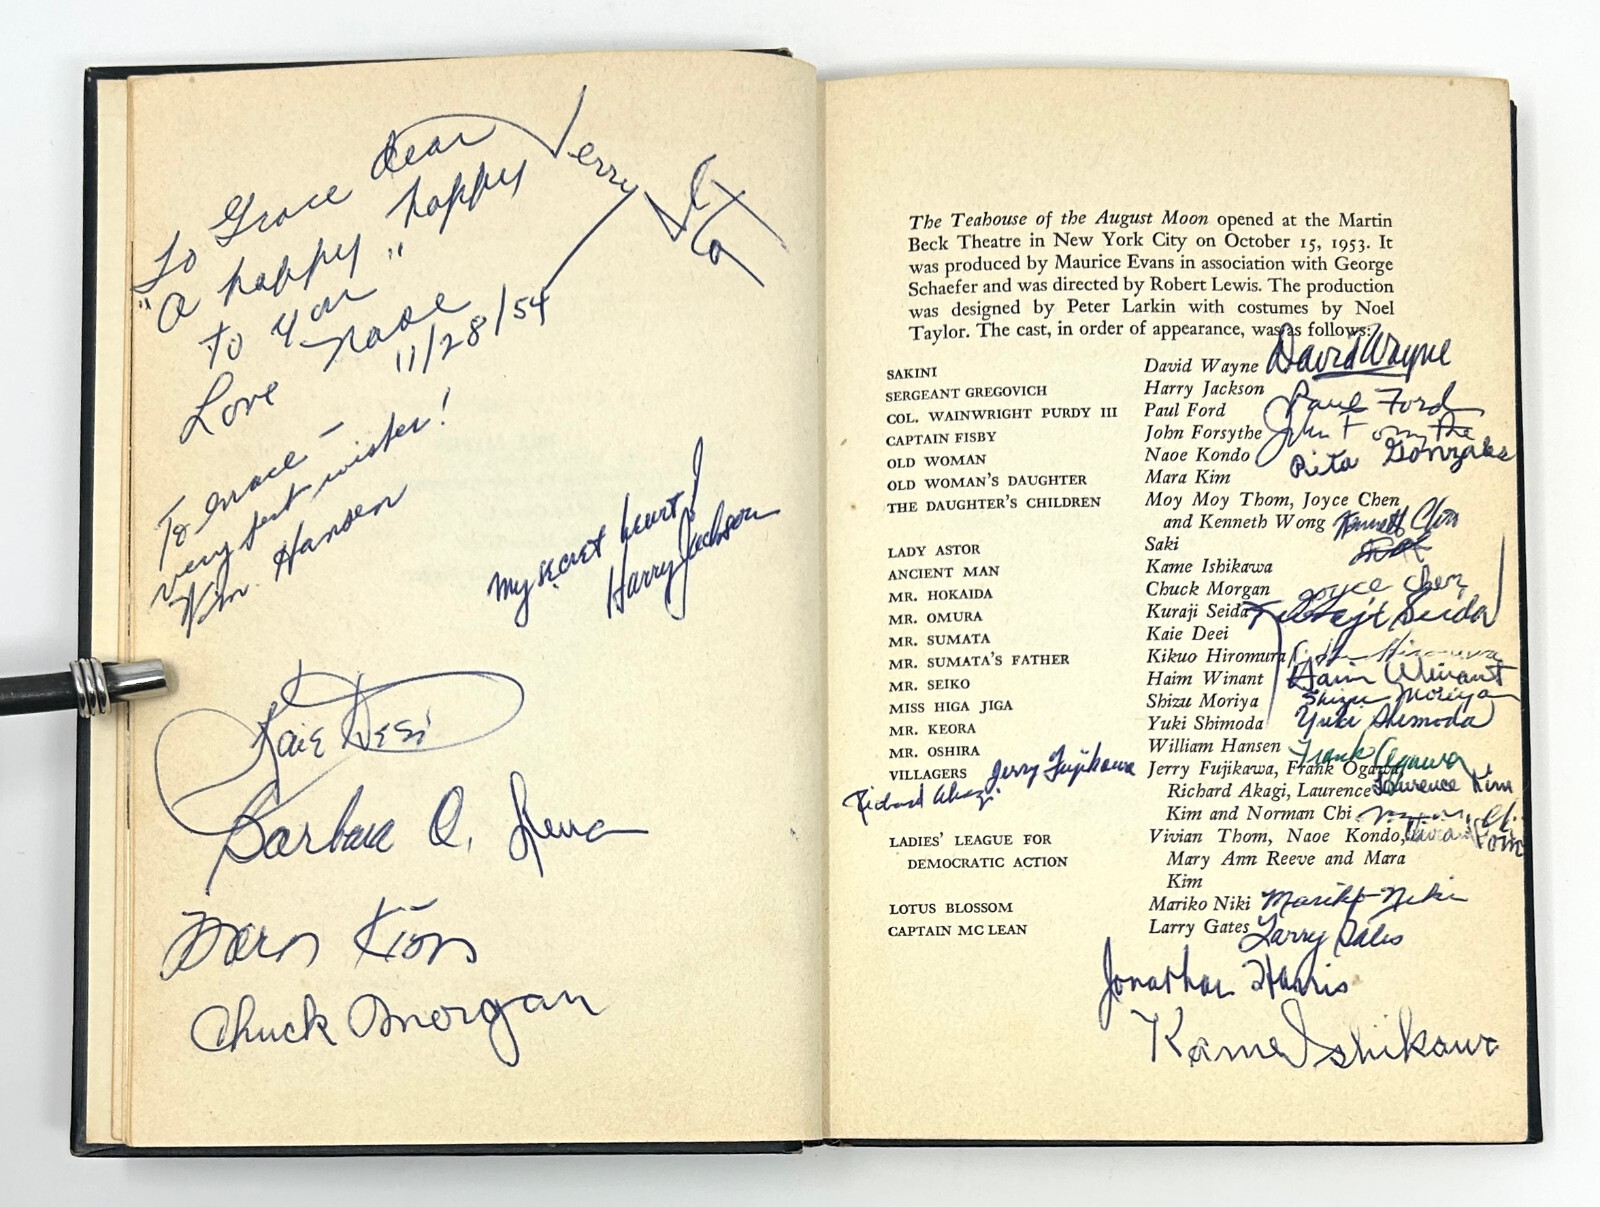 To Grace dear
"A happy" happy
to you
Love Naoe
11/28/54
Jerry
To Grace –
very best wishes!
Wm. Hansen
My secret heart!
Harry Jackson
Kaie Deei
Barbara Q.
Chuck Morgan
The Teahouse of the August Moon opened at the Martin
Beck Theatre in New York City on October 15, 1953. It
was produced by Maurice Evans in association with George
Schaefer and was directed by Robert Lewis. The production
was designed by Peter Larkin with costumes by Noel
Taylor. The cast, in order of appearance, was as follows:
SAKINI David Wayne David Wayne
SERGEANT GREGOVICH Harry Jackson
COL. WAINWRIGHT PURDY III Paul Ford Paul Ford
CAPTAIN FISBY John Forsythe John Forsythe
OLD WOMAN Naoe Kondo Rita Gonzales
OLD WOMAN'S DAUGHTER Mara Kim
THE DAUGHTER'S CHILDREN Moy Moy Thom, Joyce Chen
and Kenneth Wong Kenneth
LADY ASTOR Saki
ANCIENT MAN Kame Ishikawa
MR. HOKAIDA Chuck Morgan Joyce Chen
MR. OMURA Kuraji Seida Kuraji Seida
MR. SUMATA Kaie Deei
MR. SUMATA'S FATHER Kikuo Hiromura Kikuo Hiromura
MR. SEIKO Haim Winant Haim Winant
MISS HIGA JIGA Shizu Moriya Shizu Moriya
MR. KEORA Yuki Shimoda Yuki Shimoda
MR. OSHIRA William Hansen Frank Ogawa
VILLAGERS Jerry Fujikawa Jerry Fujikawa, Frank Ogawa,
Richard Akagi Richard Akagi, Laurence Laurence Kim
Kim and Norman Chi Norman Chi
LADIES' LEAGUE FOR Vivian Thom, Naoe Kondo, Vivian Thom
DEMOCRATIC ACTION Mary Ann Reeve and Mara
Kim
LOTUS BLOSSOM Mariko Niki Mariko Niki
CAPTAIN MC LEAN Larry Gates Larry Gates
Jonathan Harris
Kame Ishikawa